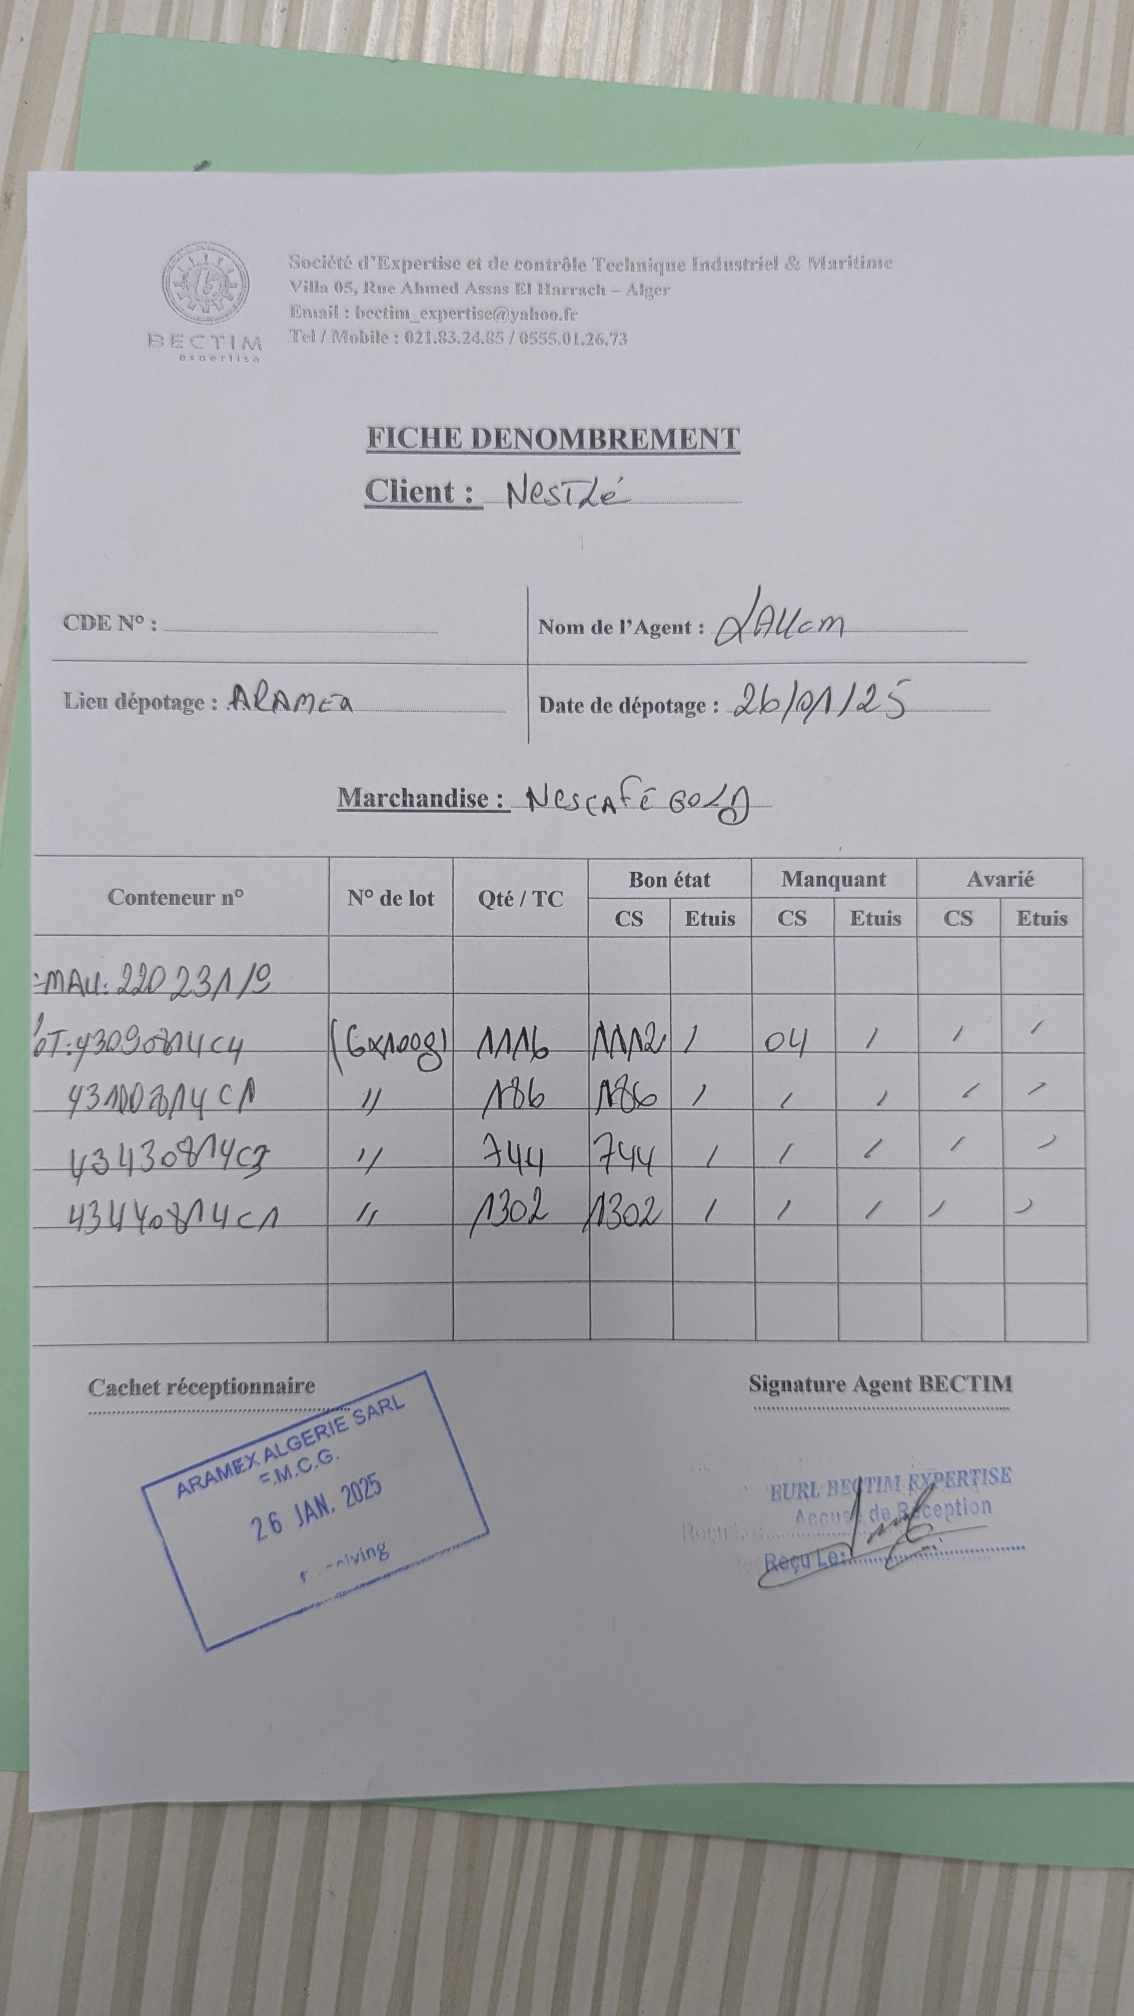 Société d'Expertise et de contrôle Technique Industriel & Maritime
Villa 05, Rue Ahmed Assas El Harrach – Alger
Email : bectim_expertise@yahoo.fr
Tel / Mobile : 021.83.24.85 / 0555.01.26.73
BECTIM
expertise
FICHE DENOMBREMENT
Client : NESTLé
CDE N° :
Nom de l'Agent :
Lieu dépotage :
Date de dépotage : 26/01/25
Marchandise : NESCAFÉ GOLD
Conteneur n° N° de lot Qté / TC Bon état Manquant Avarié
CS Etuis CS Etuis CS Etuis
220231/9
43090814C4 (6x100g) 1116 1112 / 04 / / /
43100814C1 // 186 186 / / / / /
43430814C3 // 744 744 / / / / /
43440814C1 // 1302 1302 / / / / /
Cachet réceptionnaire
Signature Agent BECTIM
ARAMEX ALGERIE SARL
F.M.C.G.
26 JAN. 2025
EURL BECTIM EXPERTISE
Accusé de Réception
Reçu Le: